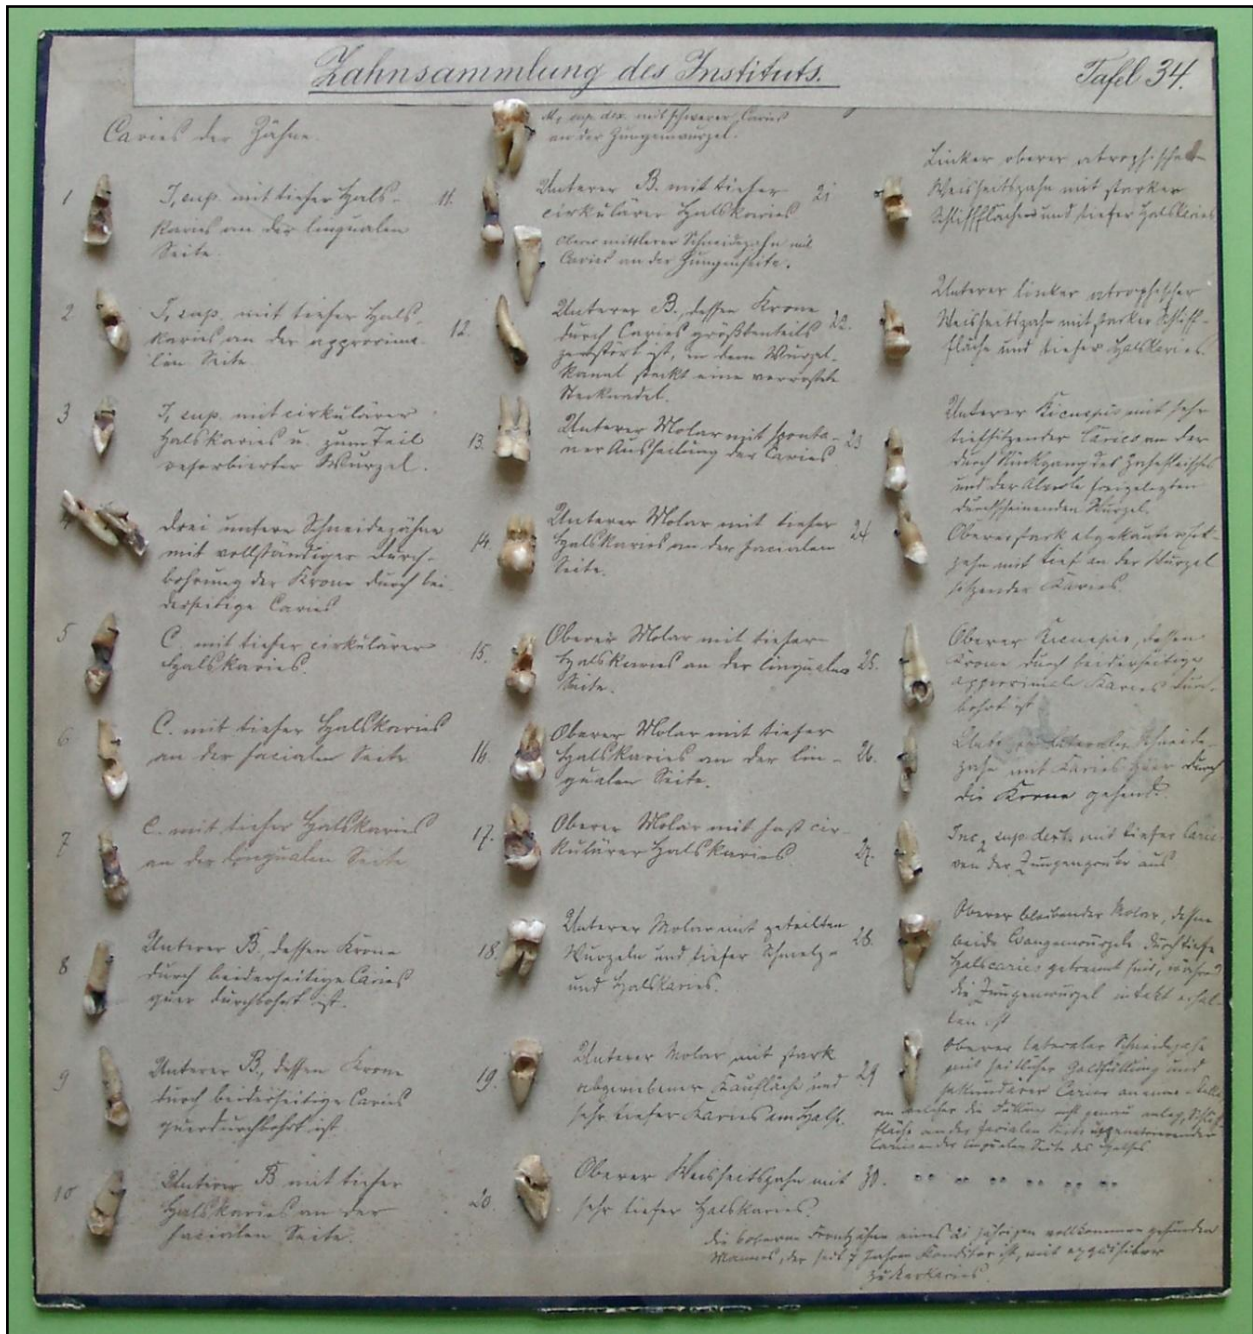 Zahnsammlung des Instituts.
Tafel 34.
Caries der Zähne.
1 J, sup. mit tiefer Hals-
karies an der lingualen
Seite.
2 J, sup. mit tiefer Hals-
karies an der approxima-
len Seite
3 J, sup. mit cirkulärer
Halskaries u. zum Teil
resorbierter Wurzel.
4 Drei untere Schneidezähne
mit vollständiger Durch-
bohrung der Krone durch bei-
derseitige Caries
5 C. mit tiefer cirkulärer
Halskaries.
6 C. mit tiefer Halskaries
an der facialen Seite
7 C. mit tiefer Halskaries
an der lingualen Seite
8 Unterer B, dessen Krone
durch beiderseitige Caries
quer durchbohrt ist.
9 Unterer B, dessen Krone
durch beiderseitige Caries
querdurchbohrt ist.
10 Unterer B mit tiefer
Halskaries an der
facialen Seite.
M, sup. dex. mit schwerer Caries
an der Zungenwurzel.
11. Unterer B. mit tiefer
cirkulärer Halskaries
Oberer mittlerer Schneidezahn mit
Caries an der Zungenseite.
12. Unterer B., dessen Krone
durch Caries größtenteils
zerstört ist, in dem Wurzel-
kanal steckt eine verrostete
Stecknadel.
13. Unterer Molar mit sponta-
ner Ausheilung der Caries
14. Unterer Molar mit tiefer
Halskaries an der facialen
Seite.
15. Oberer Molar mit tiefer
Halskaries an der lingualen
Seite.
16. Oberer Molar mit tiefer
Halskaries an der lin-
gualen Seite.
17. Oberer Molar mit fast cir-
kulärer Halskaries
18. Unterer Molar mit geteilten
Wurzeln und tiefer Schmelz-
und Halskaries.
19. Unterer Molar mit stark
abgeriebener Kaufläche und
sehr tiefer Karies am Halse.
20. Oberer Weisheitszahn mit
sehr tiefer Halskaries.
21 Linker oberer atrophischer
Weisheitszahn mit starker
Schliffflächen und tiefer Halskaries
22. Unterer linker atrophischer
Weisheitszahn mit starker Schliff-
fläche und tiefer Halskaries.
23 Unterer Bicuspis mit sehr
tiefsitzender Caries an der
durch Rückgang des Zahnfleisches
und der Alveole freigelegten
durchscheinenden Wurzel.
24 Oberer stark abgekauter Eck-
zahn mit tief an der Wurzel
sitzender Karies.
25. Oberer Bicuspis, dessen
Krone durch beiderseitige
approximale Karies durch-
bohrt ist
26. lateraler Schneide-
zahn mit Karies quer durch
die Krone gehend.
27. Inc₂ sup. dext. mit tiefer Caries
von der Zungengrube aus
28. Oberer bleibender Molar, dessen
beide Wangenwurzeln durch tiefe
Halscaries getrennt sind, während
die Zungenwurzel intakt erhal-
ten ist
29 Oberer lateraler Schneidezahn
mit seitlicher Goldfüllung und
sekundärer Caries an einer Stelle,
an welcher die Füllung nicht genau anlag, Schliff-
fläche an der facialen Seite
Caries an der lingualen Seite des Halses
30. " " " " " "
die 6 oberen Frontzähne eines 21 jährigen vollkommen gesunden
Mannes, der seit 7 Jahren Konditor ist, mit exquisiter
Zuckerkaries.